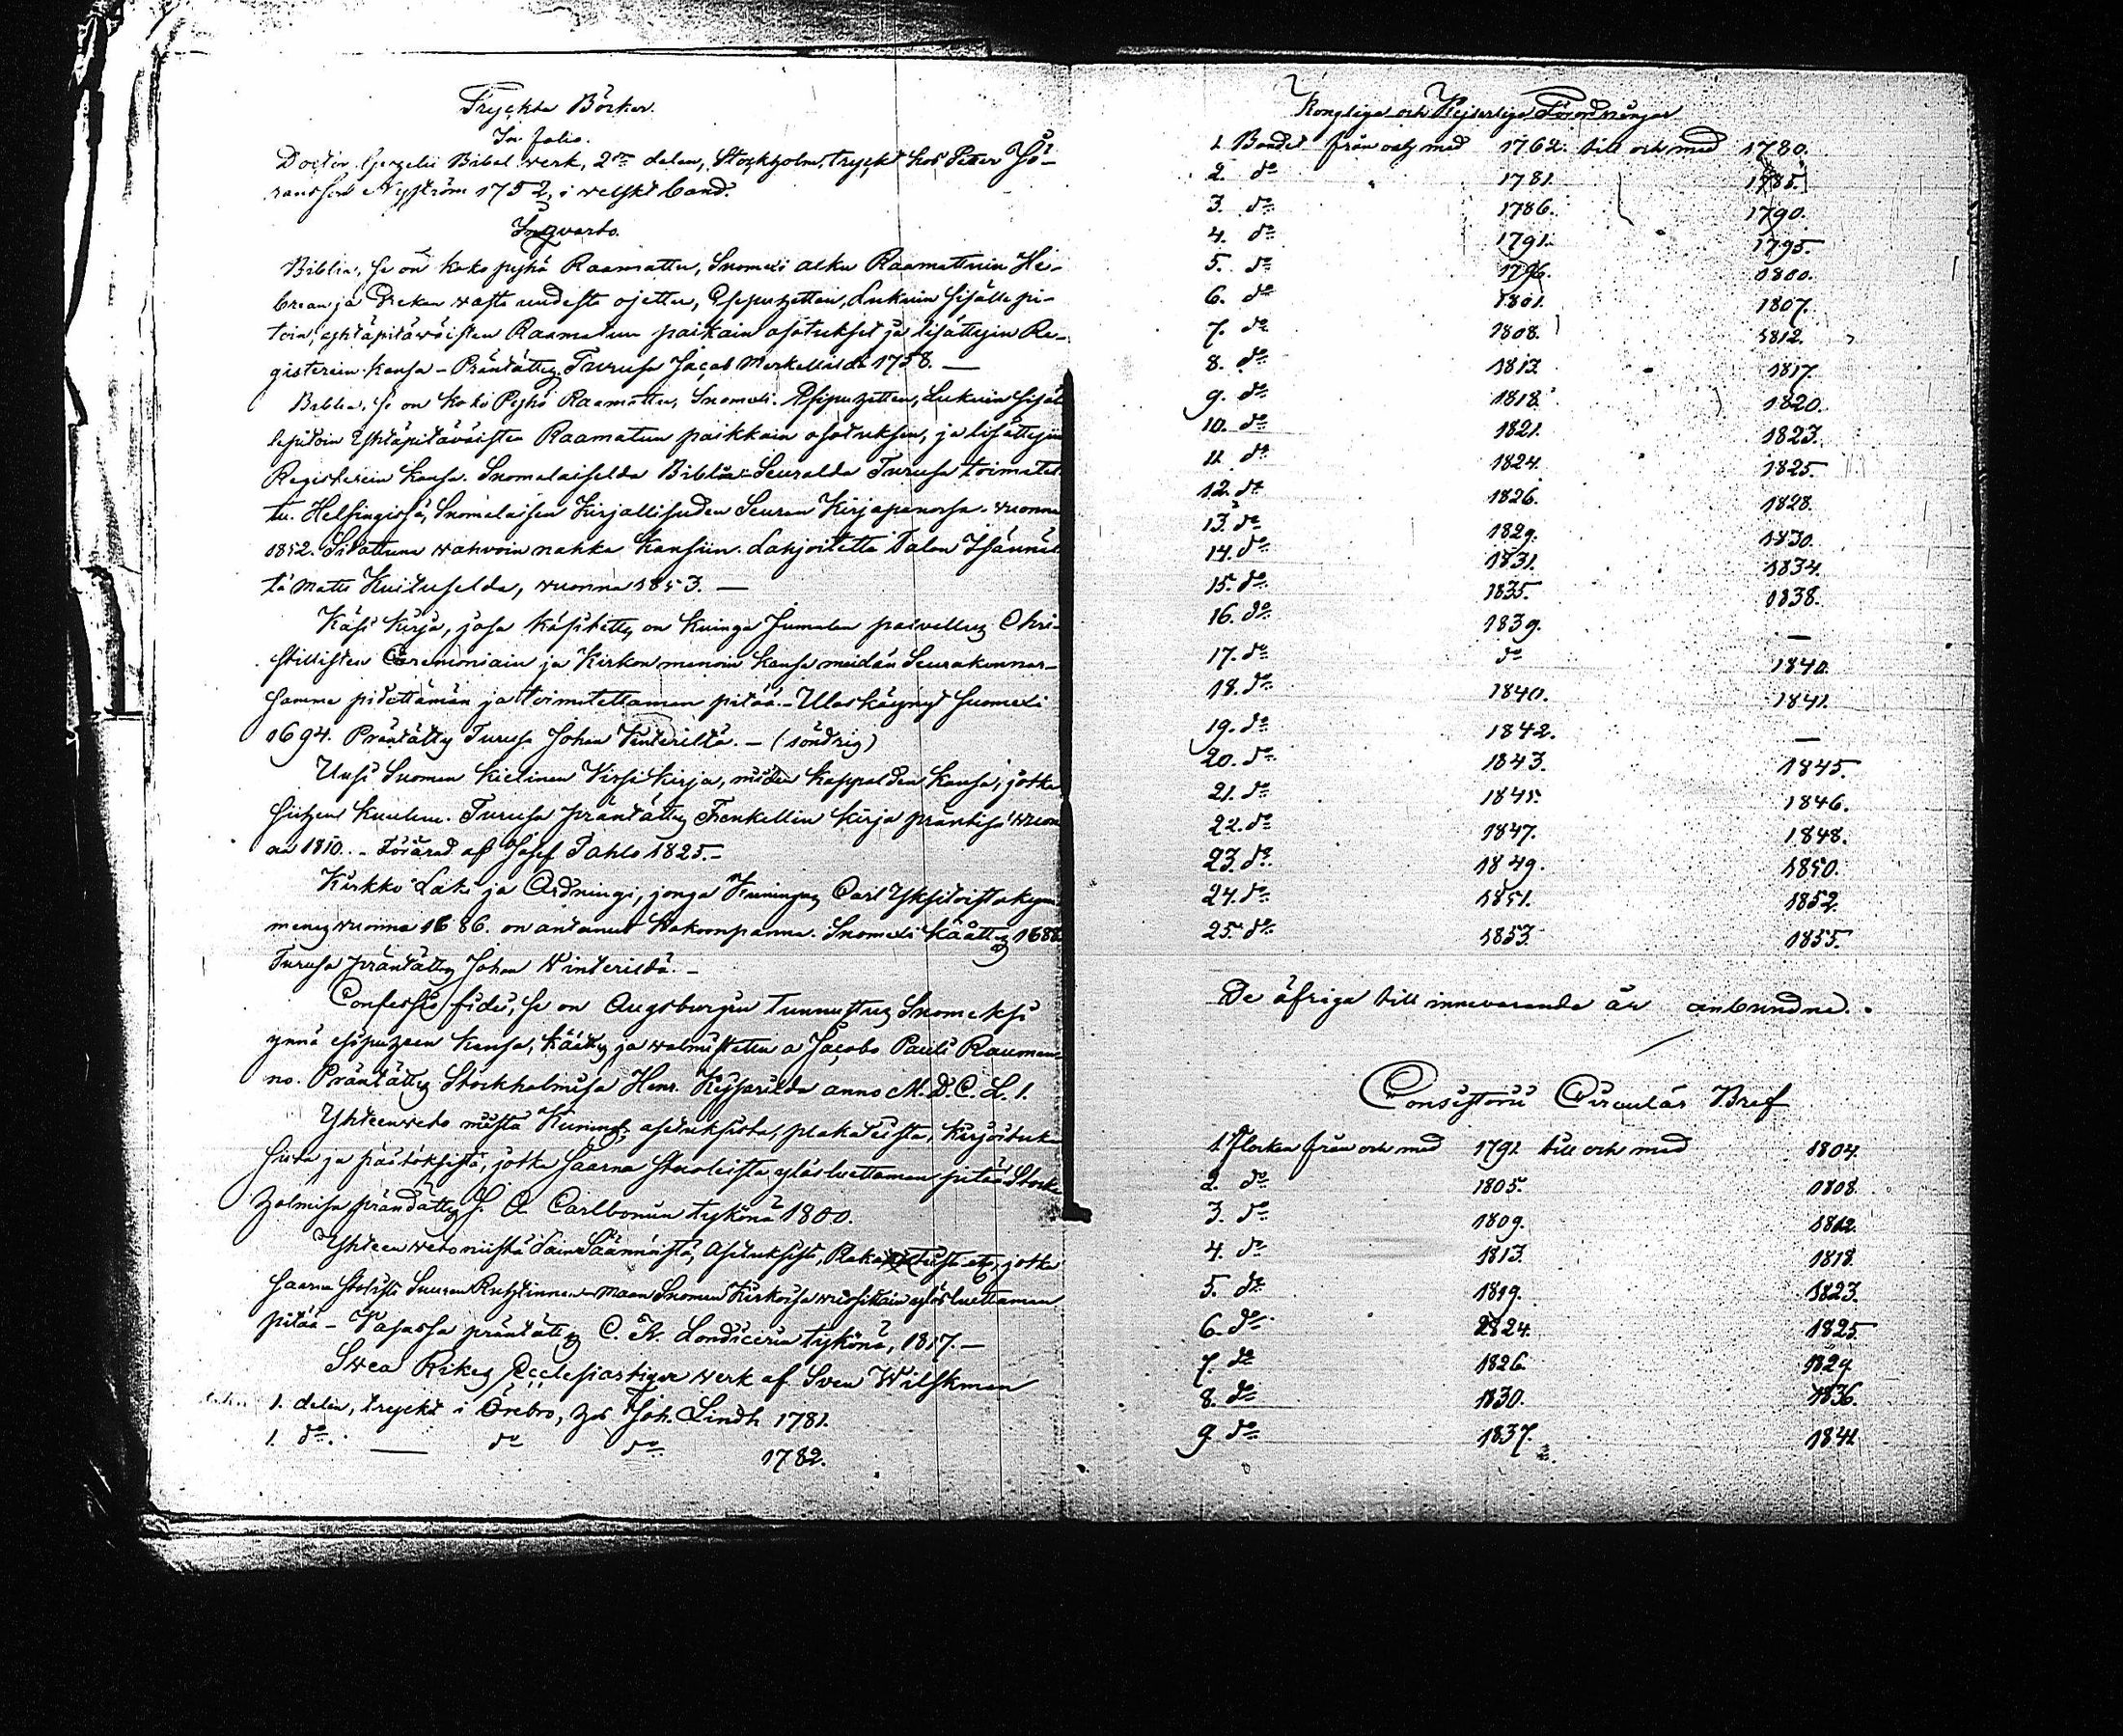 Tryckta Böcker.
In folio.
Doctor Gezelii Bibel werk, 2dra delen, Stockholm, tryckt hos Peter Jö-
ransson Nyström 1752, i welskt band.
In qvarto.
Biblia, se on koko pyhä Raamattu, Suomexi alku Raamattuin He-
brean ja Grekan wasta uudesta ojettu, Esipuhetten, Lukuin sisälle pi-
toin, yhtäpitäwäisten Raamatun paikain osotukset ja lisättyin Re-
gisterein kansa - Präntätty Turusa Jacob Merkellildä 1758. —
Biblia, se on koko Pyhä Raamattu, Suomexi. Esipuhetten, Lukuin sisäl
lepitoin Yhtäpitäväisten Raamatun paikkain osotuksen, ja lisättyin
Registerein kansa. Suomalaiselda Biblia-Seuralda Turusa toimitet
tu. Helsingissä, Suomalaisen Kirjallisuden Seuran Kirjapanossa. vuonna
1852. Sidottuna wahvoin nahka kansiin. Lahjoitettu Talon Isännäl
tä Matti Kuitulselda, vuonna 1853. —
Käsi Kirja, josa käsitetty on kuinga Jumalan palvellus Chri-
stillisten Ceremoniain ja Kirkon menoin kansa meidän Seurakunnas-
samme pidettämän ja toimitettaman pitää. - Uloskäynyt Suomexi
1694. Präntätty Turusa Johan Winterildä. - (söndrig)
Uusi Suomen kielinen Virsikirja, niiden kappalden kansa, jotka
siihen kuuluu. Turusa präntätty Frenkellin kirja präntisä wuon
na 1810. - Förärad af Josef Pahlo 1825. -
Kirkko-Laki ja Ordningi, jonga Kuningas Carl Yksitoistakym
menes wuonna 1686. on antanut Kokoonpanna. Suomexi käätty 1688
Turusa präntätty Johan Winterildä. -
Confessio fidei, se on Augsburgin Tunnustus Suomeksi
ynnä esipuheen kansa, käätty ja walmistettu a Jacobo Pauli Raumann
no. Präntätty Stockholmisa Henr. Keysarilda anno M.D.C.L.1.
Yhteenveto niistä Kuningl. asetuksista, plakateista, kirjoituk
sista ja päätöksistä, jotka saarna stuoleista ylösluettaman pitää Stock
holmisa prändätty J. A. Carlbomin tykönä 1800.
Yhteen weto niistä Lain Säännöistä, Asetuksista, Plakateista etc. jotka
saarna stolista Suuren Ruhtinnan-maan Suomen Kirkoisa wuosittain ylösluettaman
pitää - Vasassa präntätty C. A. Londicerin tykönä, 1817. —
Swea Rikes Ecclesiastique werk af Sven Wilskman
1. delen, tryckt i Örebro, hos Joh. Lindh 1781.
1. do. — do do 1782.
Kongliga och Kejserliga Förordningar
1. Bandet från och med 1762. till och med 1780.
2. do 1781. 1785.
3. do 1786. 1790.
4. do 1791. 1795.
5. do 1796. 1800.
6. do 1801. 1807.
7. do 1808. 1812.
8. do 1813. 1817.
9. do 1818. 1820.
10. do 1821. 1823.
11. do 1824. 1825.
12. do 1826. 1828.
13. do 1829. 1830.
14. do 1831. 1834.
15. do 1835. 1838.
16. do 1839. —
17. do do 1840.
18. do 1840. 1841.
19. do 1842. —
20. do 1843. 1845.
21. do 1845. 1846.
22. do 1847. 1848.
23. do 1849. 1850.
24. do 1851. 1852.
25. do 1853. 1855.
De öfriga till innevarande år oinbundne.
Consistorii Circulär Bref
1. Flocken från och med 1792 till och med 1804.
2. do 1805. 1808.
3. do 1809. 1812.
4. do 1813. 1818.
5. do 1819. 1823.
6. do 1824. 1825.
7. do 1826. 1829.
8. do 1830. 1836.
9. do 1837. 1841